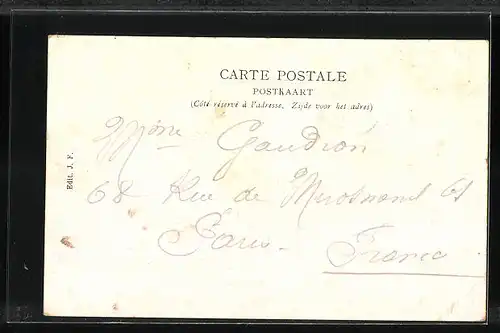 CARTE POSTALE
POSTKAART
(Côté réservé à l'adresse. Zijde voor het adres)
Mme Gaudron
68 Rue de
Paris - France
Edit. J. F.